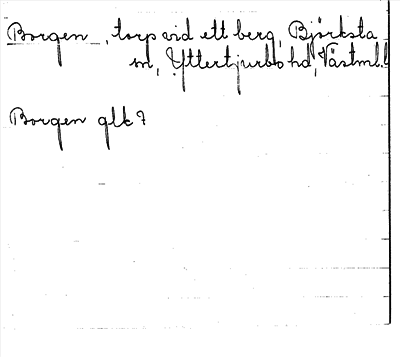 Borgen, torp vid ett berg, Björksta
sn, Yttertjurbo hd, Västml.
Borgen glk?